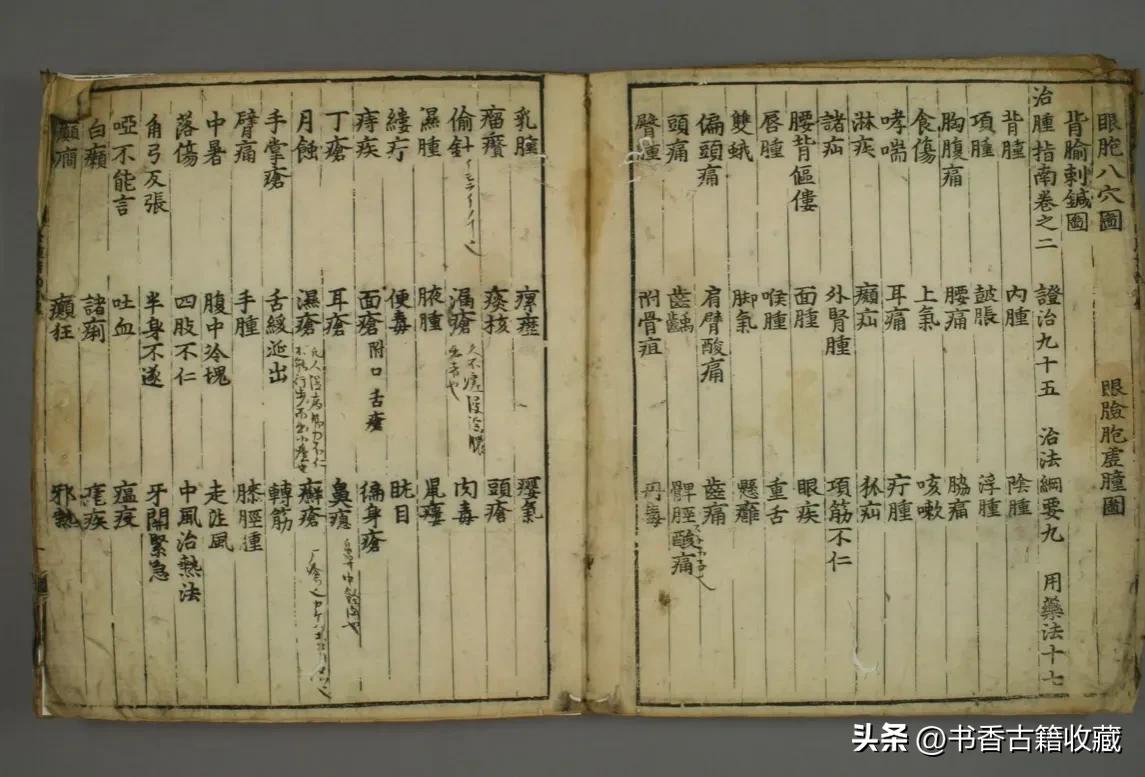 眼胞八穴圖 眼臉胞虛腫圖
背腧刺鍼圖
治腫指南卷之二 證治九十五 治法綱要九 用藥法十七
背腫 內腫 陰腫
項腫 皷脹 浮腫
胸腹痛 腰痛 脇痛
食傷 上氣 咳嗽
哮喘 耳痛 疔腫
淋疾 癲疝 狐疝
諸疝 外腎腫 項筋不仁
腰背傴僂 面腫 眼疾
唇腫 喉腫 重舌
雙蛾 脚氣 懸癰
偏頭痛 肩臂酸痛 齒痛
頭痛 齒齲 髀脛酸痛
臀腫 附骨疽 丹毒
乳腫 瘰癧 癭氣
瘤癭 痰核 頭瘡
偷針 漏瘡 肉毒
濕腫 腋腫 鼠瘻
縷疔 便毒 眈目
痔疾 面瘡附口舌瘡 徧身瘡
丁瘡 耳瘡 鼻瘜
月蝕 濕瘡 癬瘡
手掌瘡 舌緩涎出 轉筋
臂痛 手腫 膝脛腫
中暑 腹中冷塊 走注風
落傷 四肢不仁 中風治熱法
角弓反張 半身不遂 牙關緊急
啞不能言 吐血 瘟疫
白癩 諸痢 瘧疾
癲癇 癲狂 邪熱
头条 @书香古籍收藏